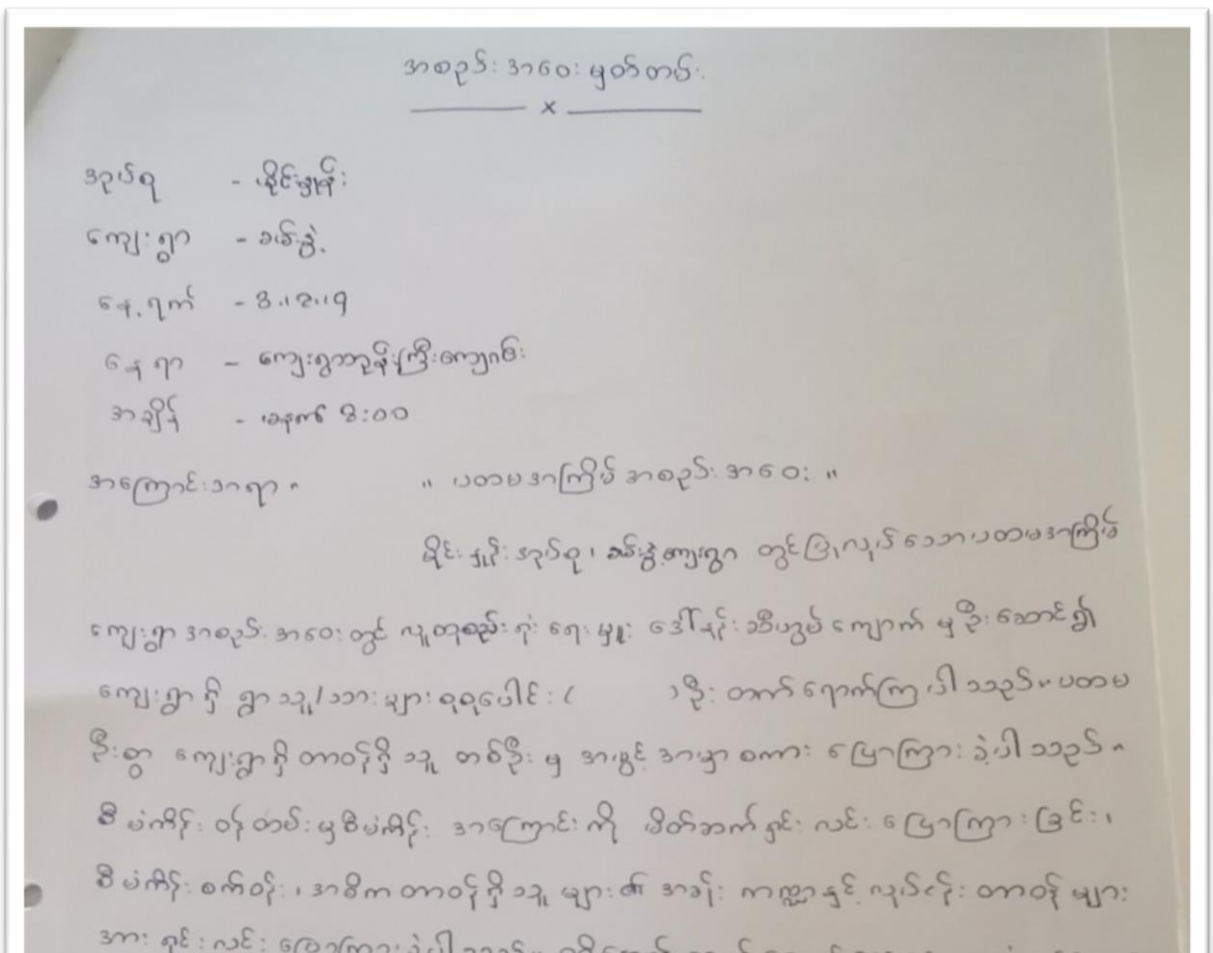 အစည်းအဝေးမှတ်တမ်း
x
အုပ်စု - မိုင်းမှုန်း
ကျေးရွာ - ခမ်းနွဲ့
နေ့ရက် - 3.12.19
နေရာ - ကျေးရွာဘုန်းကြီးကျောင်း
အချိန် - မနက် 8:00
အကြောင်းအရာ။ " ပထမအကြိမ်အစည်းအဝေး "
မိုင်းမှုန်းအုပ်စု၊ ခမ်းနွဲ့ကျေးရွာ တွင်ပြုလုပ်သောပထမအကြိမ်
ကျေးရွာအစည်းအဝေးတွင် လူထုစည်းရုံးရေးမှူး ဒေါ်နန်းသီဟွမ်ကျောက် မှဦးဆောင်၍
ကျေးရွာရှိ ရွာသူ/သားများစုစုပေါင်း ( ) ဦး တက်ရောက်ကြပါသည်။ ပထမ
ဦးစွာ ကျေးရွာရှိတာဝန်ရှိသူ တစ်ဦးမှ အဖွင့်အမှာစကား ပြောကြားခဲ့ပါသည်။
စီမံကိန်းဝန်ထမ်းမှစီမံကိန်းအကြောင်းကို မိတ်ဆက်ရှင်းလင်းပြောကြားခြင်း၊
စီမံကိန်းစက်ဝန်း၊ အဓိကတာဝန်ရှိသူများ၏ အခန်းကဏ္ဍနှင့်လုပ်ငန်းတာဝန်များ
အား ရှင်းလင်းပြောကြားခဲ့ပါသည်။